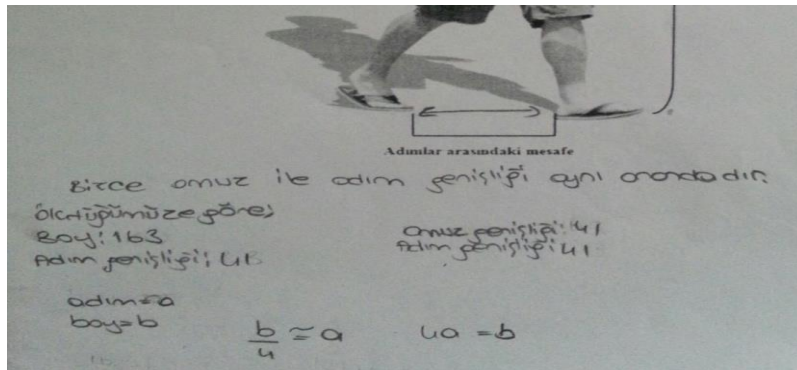 Adımlar arasındaki mesafe
Bizce omuz ile adım genişliği aynı orandadır.
ölçtüğümüze göre;
Boy: 163
Adım genişliği: 41
Omuz genişliği: 41
Adım genişliği: 41
adım=a
boy=b
b/4 ≅ a
4a = b